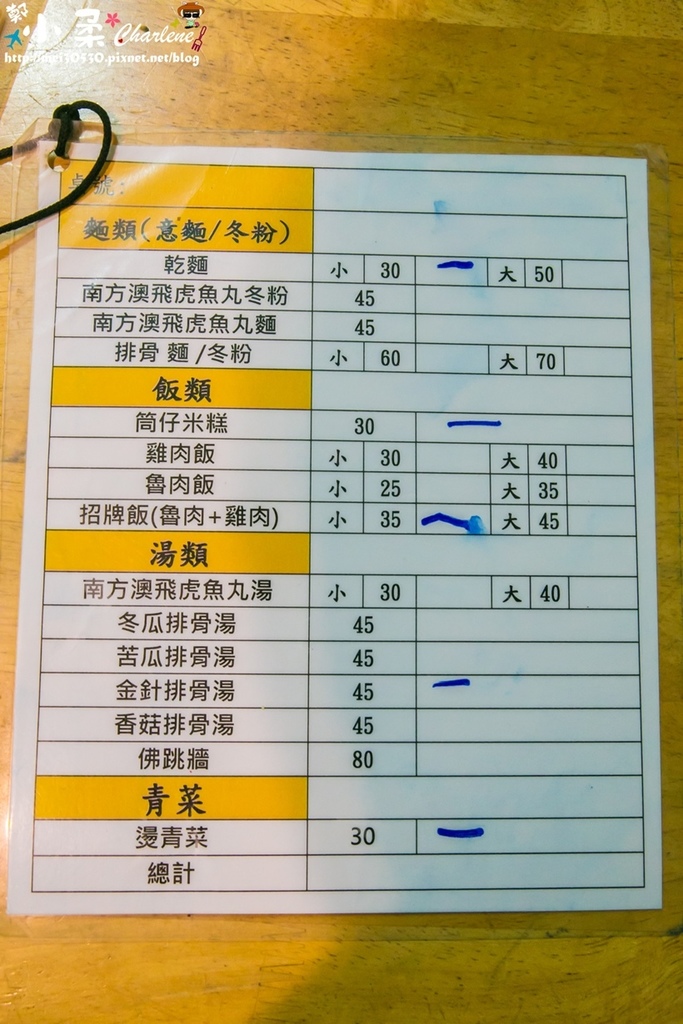 鄭小柔 Charlene
http://mei30530.pixnet.net/blog
桌號:
麵類(意麵/冬粉)
乾麵 小 30 一 大 50
南方澳飛虎魚丸冬粉 45
南方澳飛虎魚丸麵 45
排骨 麵 /冬粉 小 60 大 70
飯類
筒仔米糕 30 一
雞肉飯 小 30 大 40
魯肉飯 小 25 大 35
招牌飯(魯肉+雞肉) 小 35 一 大 45
湯類
南方澳飛虎魚丸湯 小 30 大 40
冬瓜排骨湯 45
苦瓜排骨湯 45
金針排骨湯 45 一
香菇排骨湯 45
佛跳牆 80
青菜
燙青菜 30 一
總計